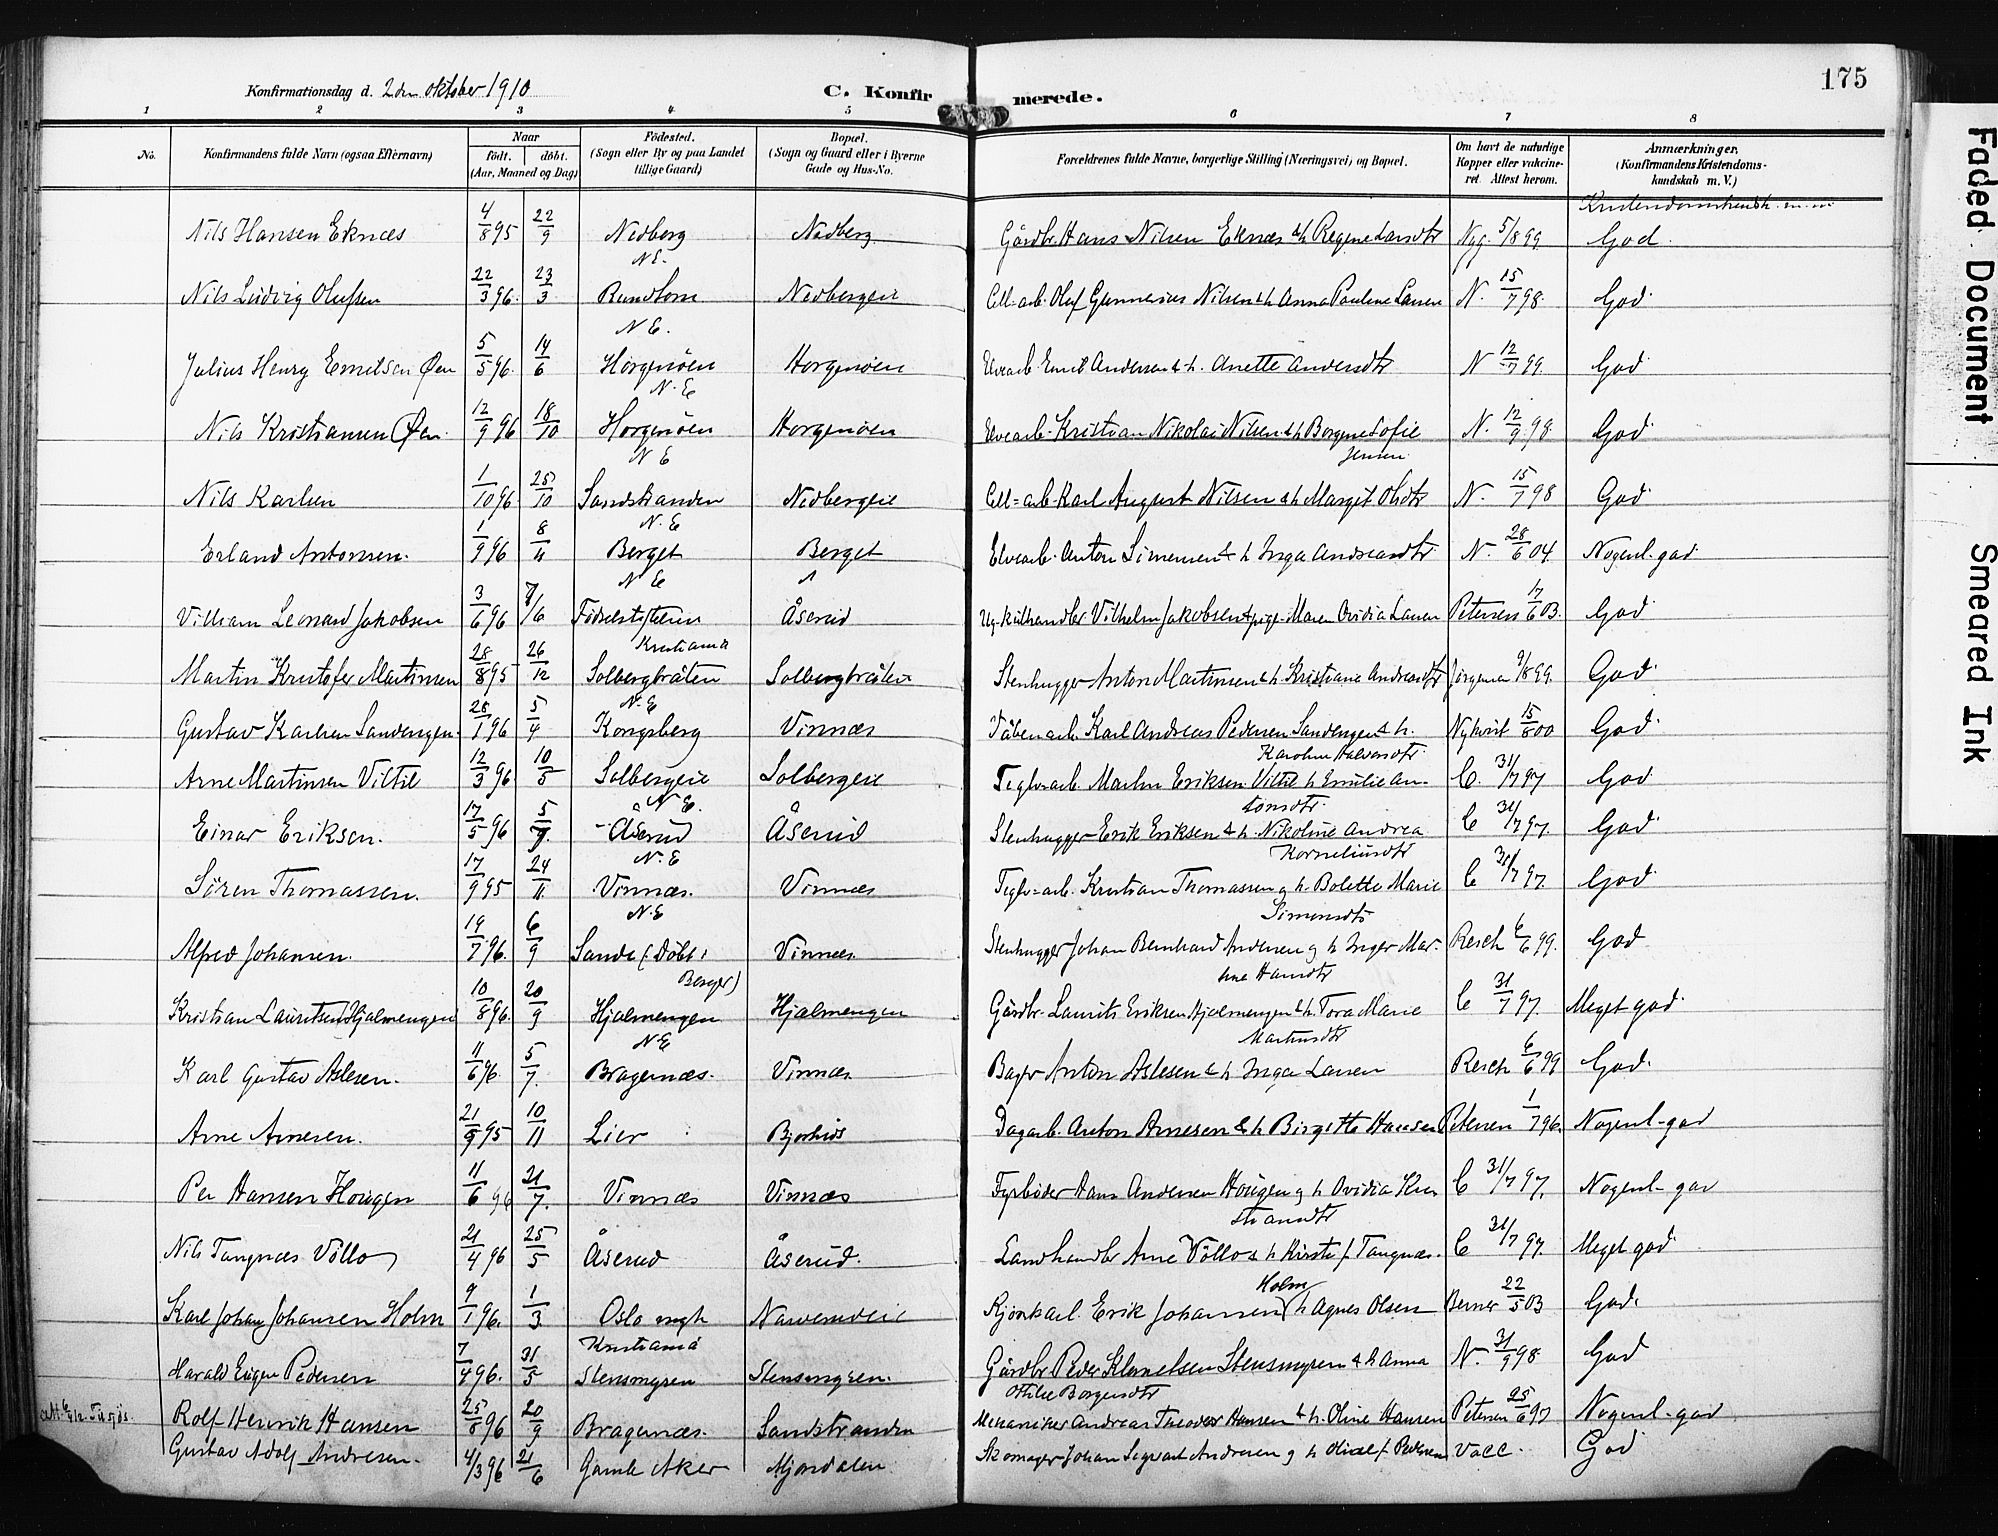 Konfirmationsdag d. 2den oktober 1910
C. Konfirmerede.
175
1 2 3 4 5 6 7 8
No.
Konfirmandens fulde Navn (ogsaa Efternavn)
Naar
födt. döbt.
(Aar, Maaned og Dag)
Födested.
(Sogn eller By og paa Landet
tillige Gaard)
Bopæl.
(Sogn og Gaard eller i Byerne
Gade og Hus-No.
Forældrenes fulde Navne, borgerlige Stilling (Næringsvei) og Bopæl.
Om havt de naturlige
Kopper eller vakcine-
ret. Attest herom.
Anmærkninger.
(Konfirmandens Kristendoms-
kundskab m. V.)
Nils Hansen Eknæs 4/8 95 22/9 Nedberg N.E. Nedberg Gårdbr. Hans Nilsen Eknæs & h. Regine Larsdtr Nyg. 5/8 99. God.
Nils Ludvig Olufsen 22/3 96. 23/3 N.E. Nedbergeie Cell-arb. Oluf Gunnerius Nilsen & h. Anna Pauline Larsen N. 15/7 98. God.
Julius Henry Emilsen Øen 5/5 96. 14/6 Horgenøen N.E. Horgenøen Elvearb. Emil Andersen & h. Anette Andersdtr N 12/7 99. God
Nils Kristiansen Øen. 12/9 96 18/10 Horgenøen N E Horgenøen Elvearb. Kristian Nikolai Nilsen & h. Borgine Sofie
Jensen. N. 12/9 98. God.
Nils Karlsen 1/10 96. 25/10 Sandstranden N.E Nedbergeie Cell=arb. Karl August Nilsen & h. Margit Olsdtr N. 15/7 98 God
Erland Antonsen. 1/9 96 8/11 Berget N E Berget Elvearb. Anton Simensen & h Inga Andreasdtr. N. 28/6 04. Nogenl. god
William Leonard Jakobsen 3/6 96 7/6 Födselsstiftelsen
Kristiania Åserud Vilhelm Jakobsen & pige Maren Ovidia Larsen Petersen 17/6 03. God
Martin Kristofer Martinsen 28/8 95 26/12 Solbergbråten N.E Solbergbråten Stenhugger Anton Martinsen & h. Kristiane Andreasdtr Jörgensen 9/8 99. God
Gustav Karlsen Sandengen. 28/1 96 5/4 Kongsberg Vinnæs Våbenarb. Karl Andreas Pedersen Sandengen & h.
Karoline Halvorsdtr. Nykvist 15/8 00 God.
Arne Martinsen Viltil 12/3 96. 10/5 Solbergeie N E. Solbergeie Teglv.arb. Martin Eriksen Viltil h Emilie An-
tonsdtr. C. 31/7 97 God
Einar Eriksen. 17/5 96 5/7. Åserud N.E Åserud Stenhugger Erik Eriksen & h. Nikoline Andrea
Korneliusdtr C 31/7 97. God
Sören Thomassen. 17/9 95 24/11. Vinnæs. N.E Vinnæs Teglv=arb. Kristian Thomassen og h. Bolette Marie
Simensdtr C 31/7 97. God
Alfred Johansen. 19/7 96. 6/9 Sande (Döbt i
Berger) Vinnæs Stenhugger Johan Bernhard Andersen og h Inger Mar-
tine Hansdtr Resch 6/6 99. God
Kristian Lauritsen Hjalmengen 10/8 96. 20/9 Hjalmengen N.E Hjalmengen Gårdbr. Laurits Eriksen Hjalmengen & h. Tora Marie
Martinsdtr C 31/7 97. Meget god
Karl Gustav Aslesen. 11/6 96. 5/7. Bragernæs. Vinnæs Bager Anton Aslesen & h Inga Larsen Resch 6/6 99 God.
Arne Arnesen. 21/9 95 10/11 Lier Dagarb. Anton Arnesen & h Birgitte Hansen Petersen 1/7 96. Nogenl-god
Per Hansen Hougen 11/6 96 21/7. Vinnæs Vinnæs Fyrböder Hans Andersen Hougen og h Ovidia Kri-
stiansdtr C 31/7 97. Nogenl-god
Nils Tangnæs Völlo 21/4 96 25/5 Åserud Åserud. Landhandler Arne Völlo & h Kirsti f. Tangnæs. C 31/7 97. Meget god
Karl Johan Johansen Holm 9/1 96. 1/3 Oslo mgh
Kristiania Narverudeie Kjörekarl Erik Johansen Holm h Agnes Olsen Berner 22/5 03 God.
Harald Eugen Pedersen 7/4 96. 31/5 Stensmyren Stensmyren. Gårdbr Peder Klemetsen Stensmyren & h Anna
Otilie Borgersdtr N. 31/9 98 God
Rolf Henrik Hansen 25/8 96 20/9 Bragernæs. Sandstranden Mekaniker Andreas Theodor Hansen & h. Oline Hansen Petersen 25/6 97 Nogenl-god
Gustav Adolf Andresen. 4/3 96 21/6 Gamle Aker Mjøndalen Skomager Johan Sigvart Andresen og h f. Pedersen Vacc. God
Faded Document
Smeared Ink